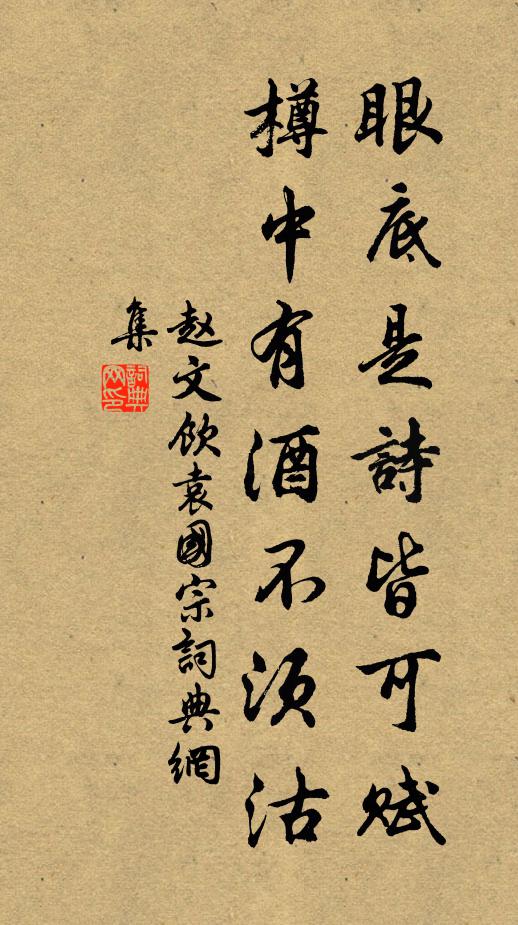 眼底是詩皆可賦
樽中有酒不須沽
赵文飲袁國宗詞典網
集
詞典網印